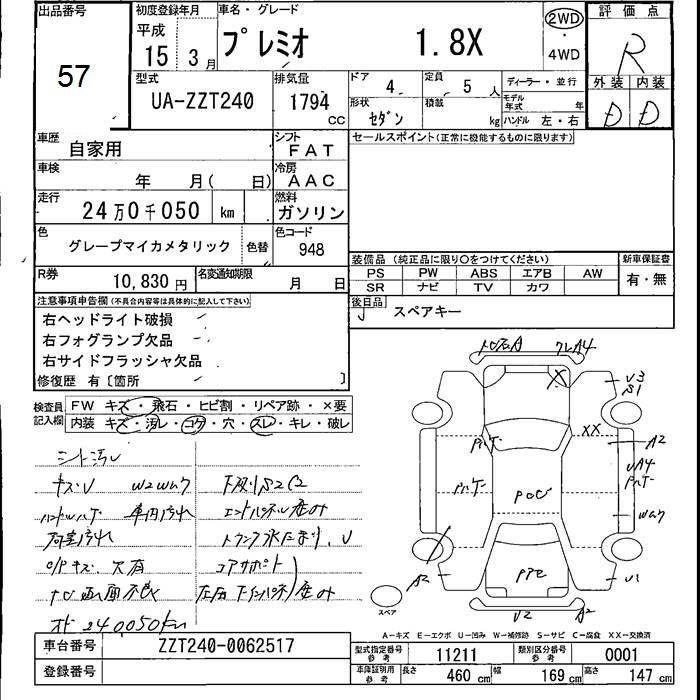 出品番号
57
初度登録年月
平成
15 3月
車名・グレード
プレミオ 1.8X
2WD
・
4WD
評価点
R
外装 内装
D D
型式
UA-ZZT240
排気量
1794 CC
ドア
4
定員
5 人
ディーラー・並行
形状
セダン
積載
kg
モデル年式 年
ハンドル 左・右
車歴
自家用
シフト
FAT
セールスポイント(正常に機能するものに限ります)
車検
年 月( 日)
冷房
AAC
走行
24万0千050 km
燃料
ガソリン
色
グレープマイカメタリック
色替
色コード
948
R券
10,830円
名変通知期限
月 日
装備品(純正品に限り○をつけてください)
PS PW ABS エアB AW
SR ナビ TV カワ
新車保証書
有・無
後日品
スペアキー
注意事項申告欄(不具合内容等は具体的に記入して下さい)
右ヘッドライト破損
右フォグランプ欠品
右サイドフラッシャ欠品
修復歴 有〔箇所 〕
検査員記入欄
FW キズ・飛石・ヒビ割・リペア跡・×要
内装 キズ・汚レ・コゲ・穴・スレ・キレ・破レ
シート汚レ
キズ U W2 Wハク
下廻りS2C2
ハンドルハゲ 車内汚れ
荷室汚れ
O/Pキズ、欠有
コアサポート
ナビ画面不良
オド240,050km
A4
U3
S1
XX
A2
UA4
A2
U1
U2
A2
スペア
A―キズ E―エクボ U―凹み W―補修跡 S―サビ C―腐食 XX―交換済
車台番号
ZZT240-0062517
登録番号
型式指定番号
参考
11211
類別区分番号
参考
0001
車庫証明用
参考
長さ 460 cm 幅 169 cm 高さ 147 cm